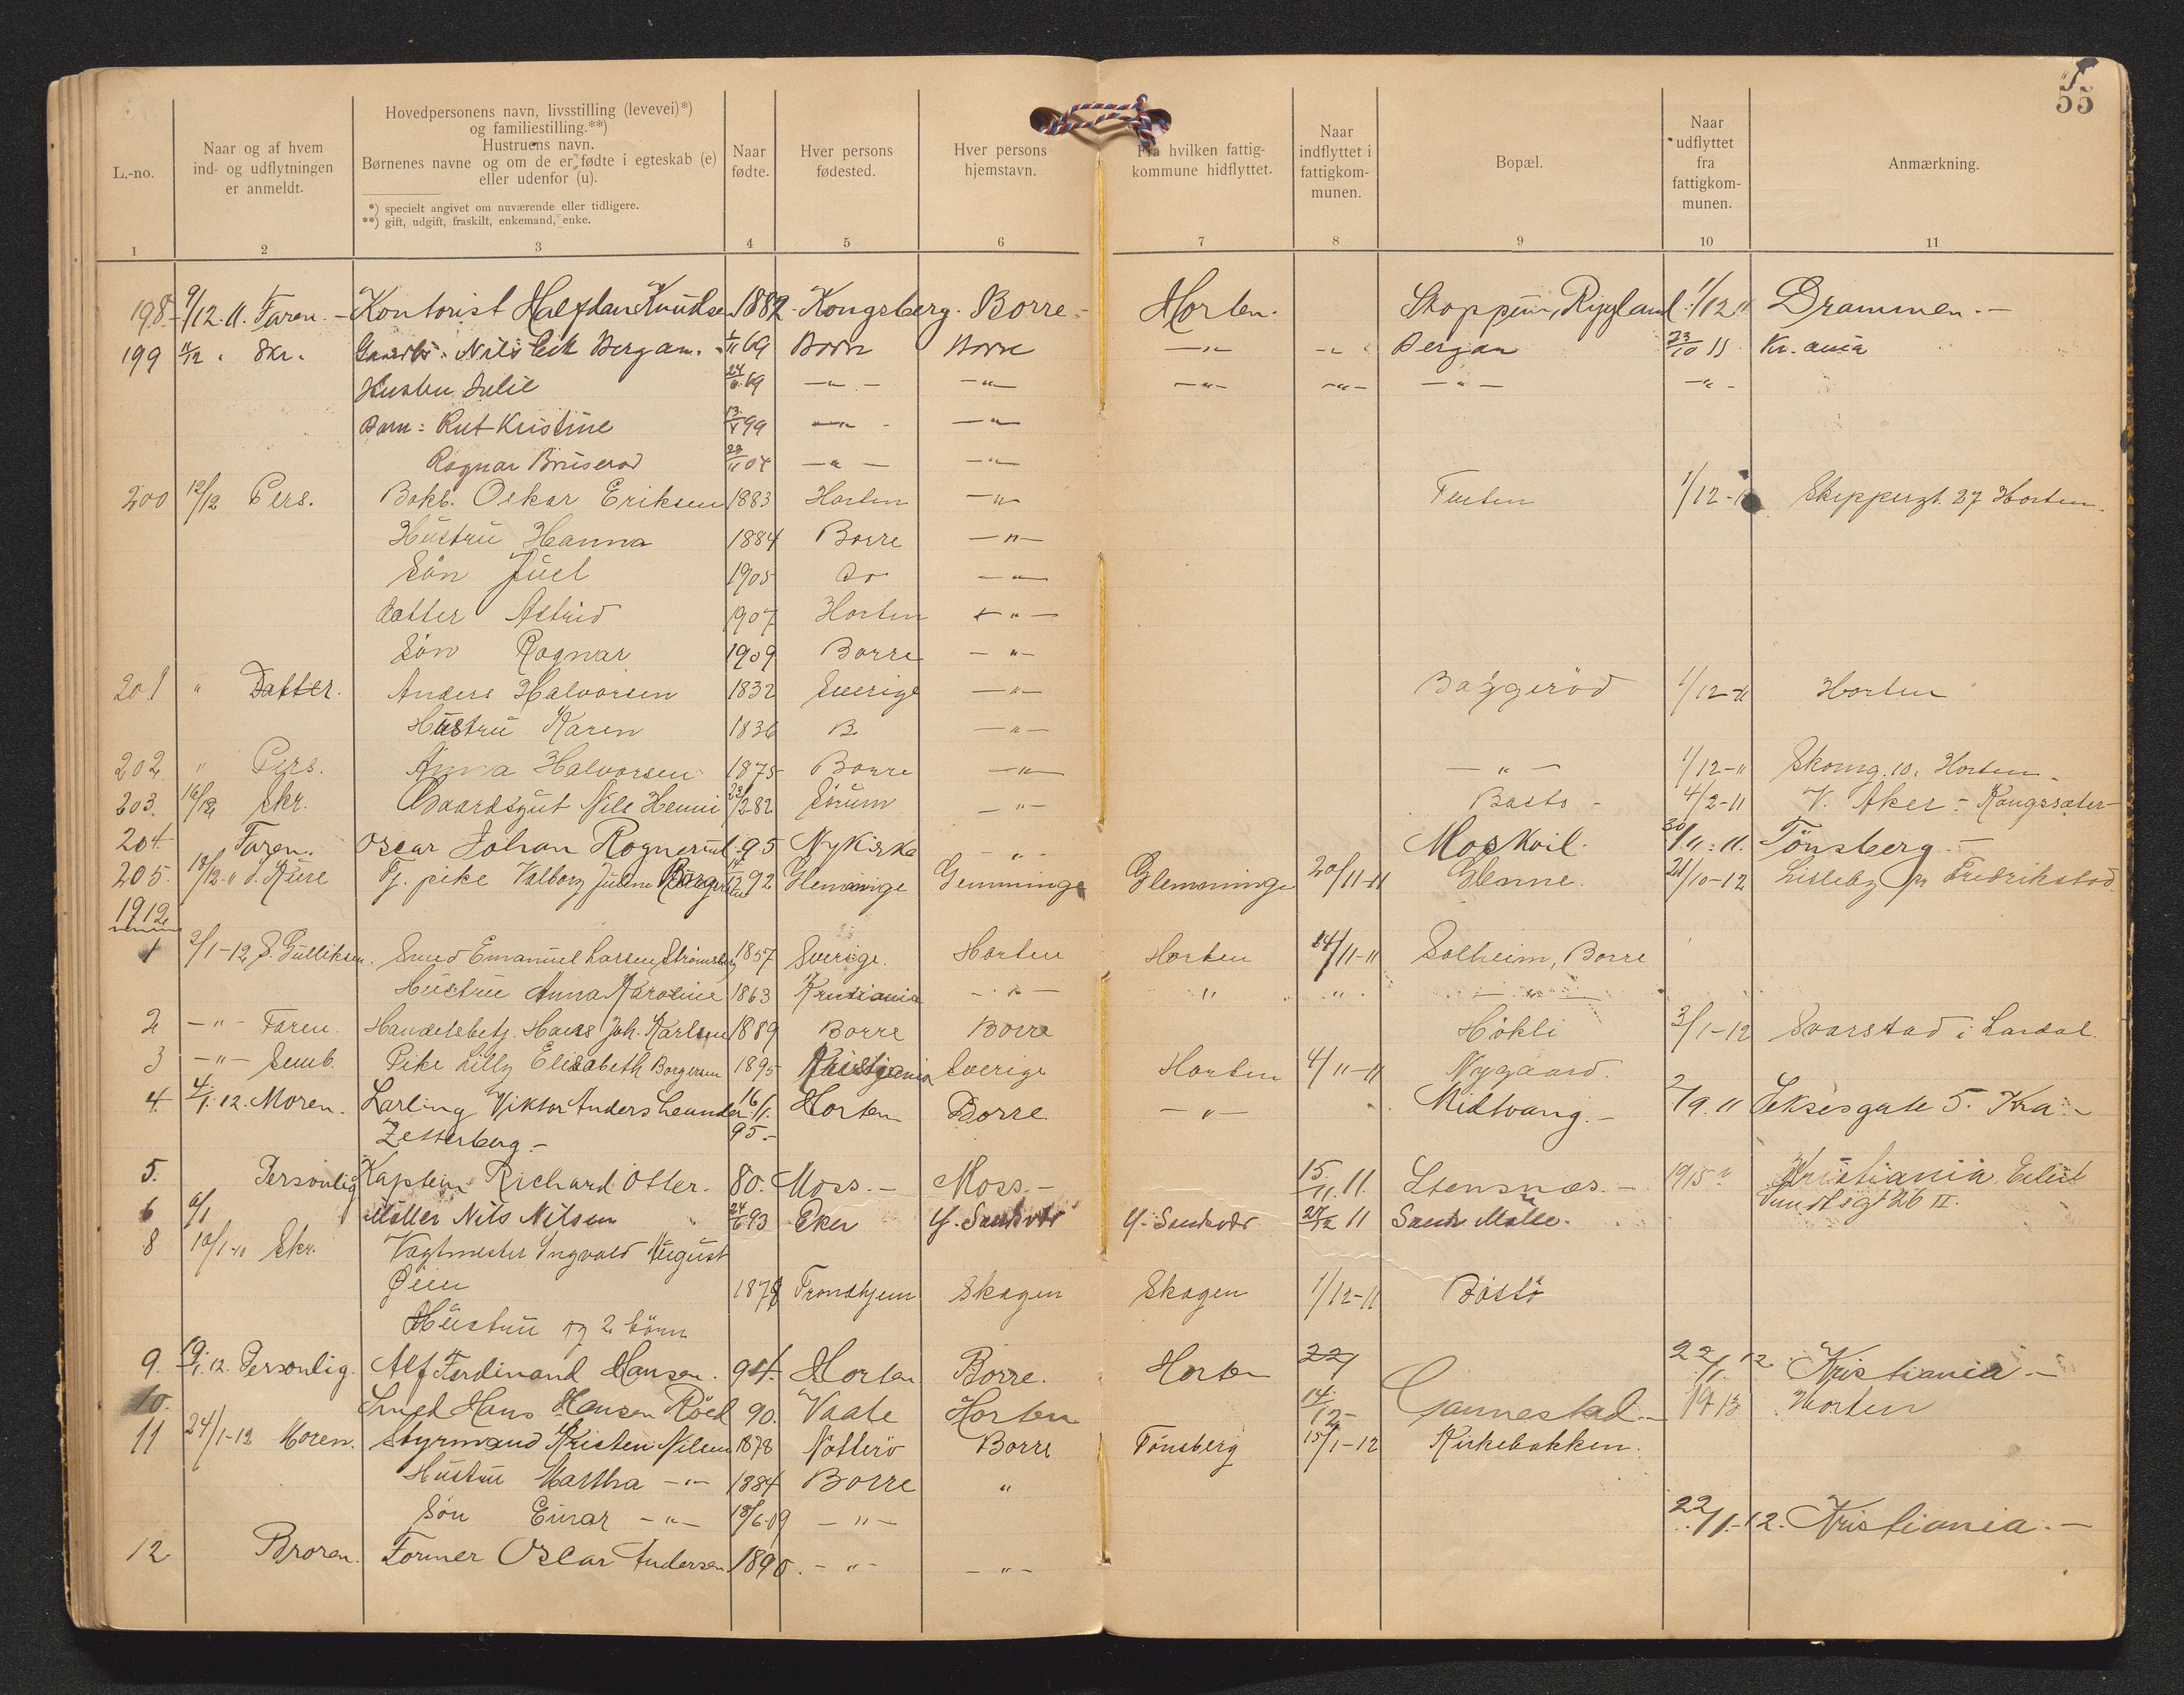 55
L.-no.
Naar og af hvem
ind- og udflytningen
er anmeldt.
Hovedpersonens navn, livsstilling (levevei)*)
og familiestilling.**)
Hustruens navn.
Børnenes navne og om de er fødte i egteskab (e)
eller udenfor (u).
*) specielt angivet om nuværende eller tidligere.
**) gift, udgift, fraskilt, enkemand, enke.
Naar
fødte.
Hver persons
fødested.
Hver persons
hjemstavn.
Fra hvilken fattig-
kommune hidflyttet.
Naar
indflyttet i
fattigkom-
munen.
Bopæl.
Naar
udflyttet
fra
fattigkom-
munen.
Anmærkning.
1 2 3 4 5 6 7 8 9 10 11
198. 9/12.11. Faren. Kontorist Halfdan Knudsen 1882. Kongsberg. Borre. Horten. Skoppum, Rygland 1/12 11 Drammen.
199 11/12 " Skr. Nils Eik Bergan. 1/11 69 Borre Borre -"- -"- Bergan 23/10 11 Kr.ania
Hustru Julie 24/11 69 -"- -"- -"- -"- -"- -"-
Barn: Rut Kristine 13/ 99 -"- -"-
Ragnar Bruserod 23/11 04 -"- -"-
200 12/12 Pers. Bokb. Oskar Eriksen 1883 Horten -"- 1/12- Skippergt. 27 Horten.
Hustru Hanna 1884 Borre -"-
Sön Juel 1905 Do -"-
datter Astrid 1907 Horten -"-
Sön Ragnar 1909 Borre -"-
201 " Datter. Anders Halvorsen 1832 Sverige -"- Baggeröd 1/12-11 Horten
Hustru Karen 1836 B. -"-
202 " Pers. Anna Halvorsen 1875 Borre -"- -"- 1/12-11 Skomg. 10, Horten.
203. 16/12 Skr. Gaardsgut Nils Henni 23/12 82 Sörum -"- Basto - 4/2-11 V. Aker - Kongssæter-
204. Faren. Oscar Johan Rognerud. 95 Nykirke -"- Moskvil. 30/11.11. Tönsberg.-
205. 18/12-11 Tj. pike Valborg Juline 92 Glemminge Gemminge Glemminge 20/11-11 Glenne. 21/10-12 Lisleby pr Fredrikstad.
1912
1 2/1-12 S. Gulliksen. Smed Emanuel Larsen Strömsberg 1857 Sverige. Horten Horten 14/11-11 Solheim, Borre
Hustru Anna Karoline 1863 Kristiania -"- " " -"-
2 -"- Faren. Handelsbetj. Hans Joh. Karlsen 1889 Borre Borre Hökli 3/1-12 Svarstad i Lardal.
3 -"- Semb. Pike Lilly Elisabeth Borgersen 1895 Kristiania Sverige Horten 4/11-11 Nygaard.
4. 4/1.12. Moren. Lærling Viktor Anders Leander 16/1. Horten Borre. -"- Midtvang.- 2/9.11 Seksesgate 5. Kra.-
Zetterberg.- 95.-
5. Personlig Kaptein Richard Otter. 80. Moss.- Moss.- 15/11.11. Stensnæs.- 1915 Kristiania Eilert
Sundtsgt 36 II.
6 6/1 Möller Nils Nilsen 24/6 93 Eker Y. Sandsvær Y. Sandsvær 27/12 11 Sande Mölle.
8 10/1- Skr. Vagtmester Ingvald August
Øien 1878 Trondhjem Skagen Skagen 1/12-11 Bästö
Hustru og 2 börn
9. 19/1.12. Personlig. Alf Ferdinand Hansen. 94. Horten Borre. Horten 22/1 22/1.12. Kristiania.-
10. Smed Hans Hansen Röed 90. Vaale Horten 14/12- Gannestad.- 1913 Horten
11 24/1-12 Moren. Styrmand Kristen Nilsen 1878 Nötterö Borre Tönsberg 15/1-12 Kirkebakken.
Hustru Martha -"- 1884 Borre "
Sön Einar -"- 18/6-09 -"-
12 Broren. Former Oscar Andersen 1890. -"- -"- 22/1.-12. Kristiania.-